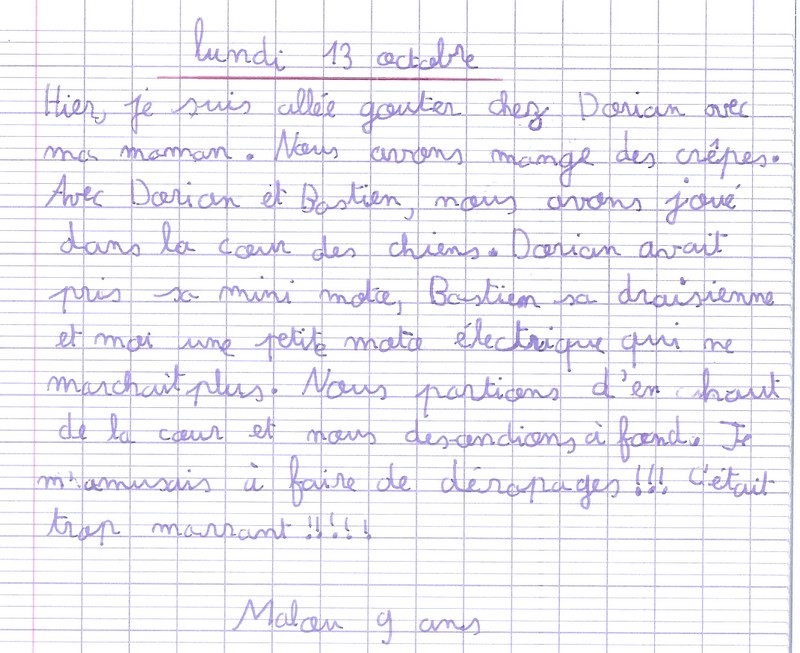 lundi 13 octobre
Hier, je suis allée goûter chez Dorian avec
ma maman. Nous avons mangé des crêpes.
Avec Dorian et Bastien, nous avons joué
dans la cour des chiens. Dorian avait
pris sa mini moto, Bastien sa draisienne
et moi une petite moto électrique qui ne
marchait plus. Nous partions d'en haut
de la cour et nous descendions à fond. Je
m'amusais à faire de dérapages !!! C'était
trop marrant !!!!!
Malou 9 ans